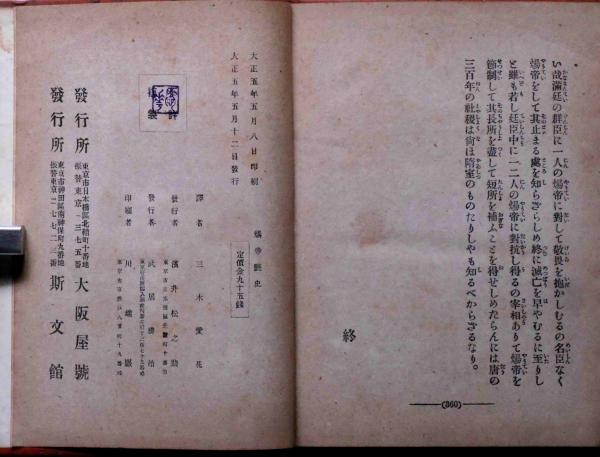 い哉滿廷の群臣に一人の煬帝に對して敬畏を抱かしむるの名臣なく
煬帝をして其止まる處を知らざらしめ終に滅亡を早やむるに至りし
と雖も若し廷臣中に一二人の煬帝に對抗し得るの宰相ありて煬帝を
節制して其長所を盡して短所を補ふことを得せしめたらんには唐の
三百年の社稷は尙ほ隋室のものたりしやも知るべからざるなり。
終
(360)
大正五年五月八日印刷
大正五年五月十二日發行
煬帝艶史
定價金九十五錢
譯者 三木愛花
發行者 濱井松之助
發行者
印刷者
發行所 大阪屋號
東京市日本橋區
發行所 斯文館
東京市神田區南神保町九番地
振替東京二七七二三番